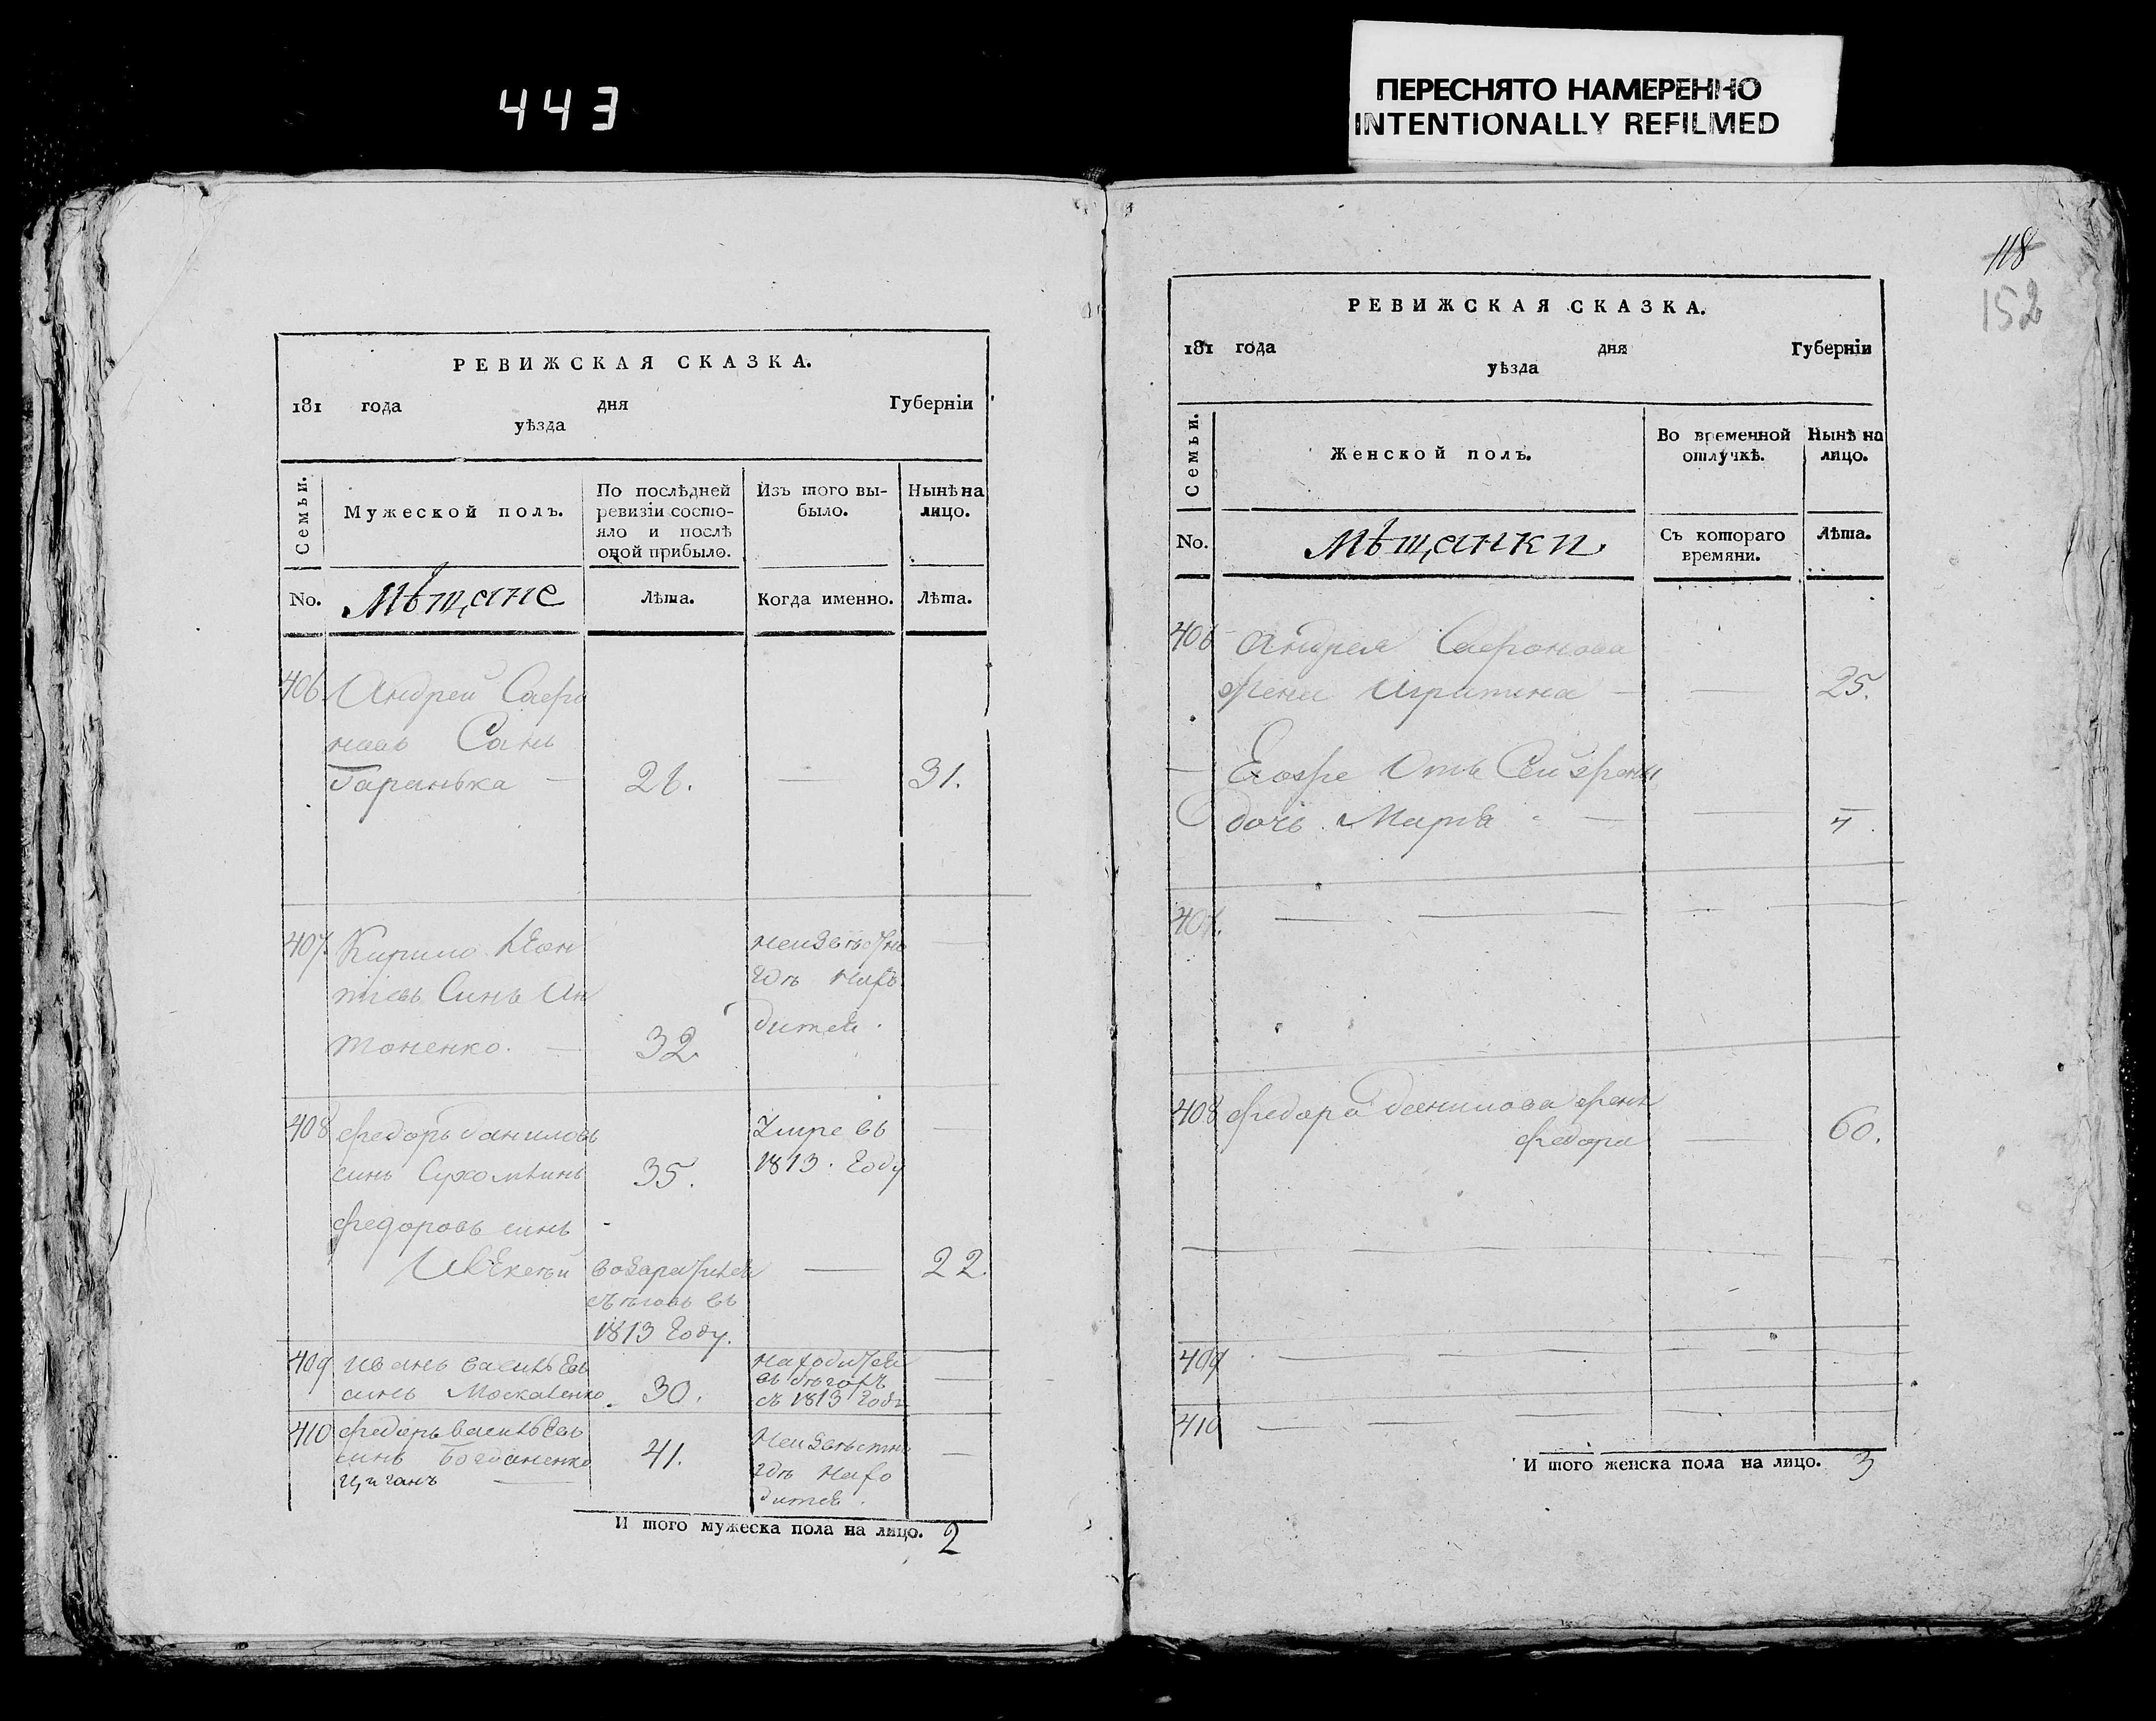 443
ПЕРЕСНЯТО НАМЕРЕННО
INTENTIONALLY REFILMED
РЕВИЖСКАЯ СКАЗКА.
181 года дня Губерніи
уѣзда
Семьи.
Мужеской полъ.
По послѣдней ревизіи состо-
яло и послѣ оной прибыло.
Изъ того вы-
было.
Нынѣ на лицо.
No.
Мѣщане
Лѣта.
Когда именно.
Лѣта.
406 Андрей Сафро
новъ Синъ
Гаранька — 28. — 31.
407. Кирило
Синъ Ан
тоненко. — 32.
неизвѣстно
где нахо
дится.
408 Федоръ Даниловъ
синъ 35.
умре въ
1813. Году
Федоровъ синъ
22.
въ
1813 Году.
409 Иванъ Васильевъ
синъ Москаленко 30.
находится
въ бѣгахъ
съ 1813 Году
410 Федоръ Васильевъ
синъ Богданенко 41.
Циганъ
Неизвѣстно
где нахо
дится.
И того мужеска пола на лицо. 2
118
152
РЕВИЖСКАЯ СКАЗКА.
181 года дня Губерніи
уѣзда
Семьи.
Женской полъ.
Во временной отлучкѣ.
Нынѣ на лицо.
No.
Мѣщанки
Съ котораго времяни.
Лѣта.
406 Андрея Сафронова
жена — 25.
дочь Марія — 4.
407.
408 Федора Данилова жена
Федора — 60.
409
410
И того женска пола на лицо. 3